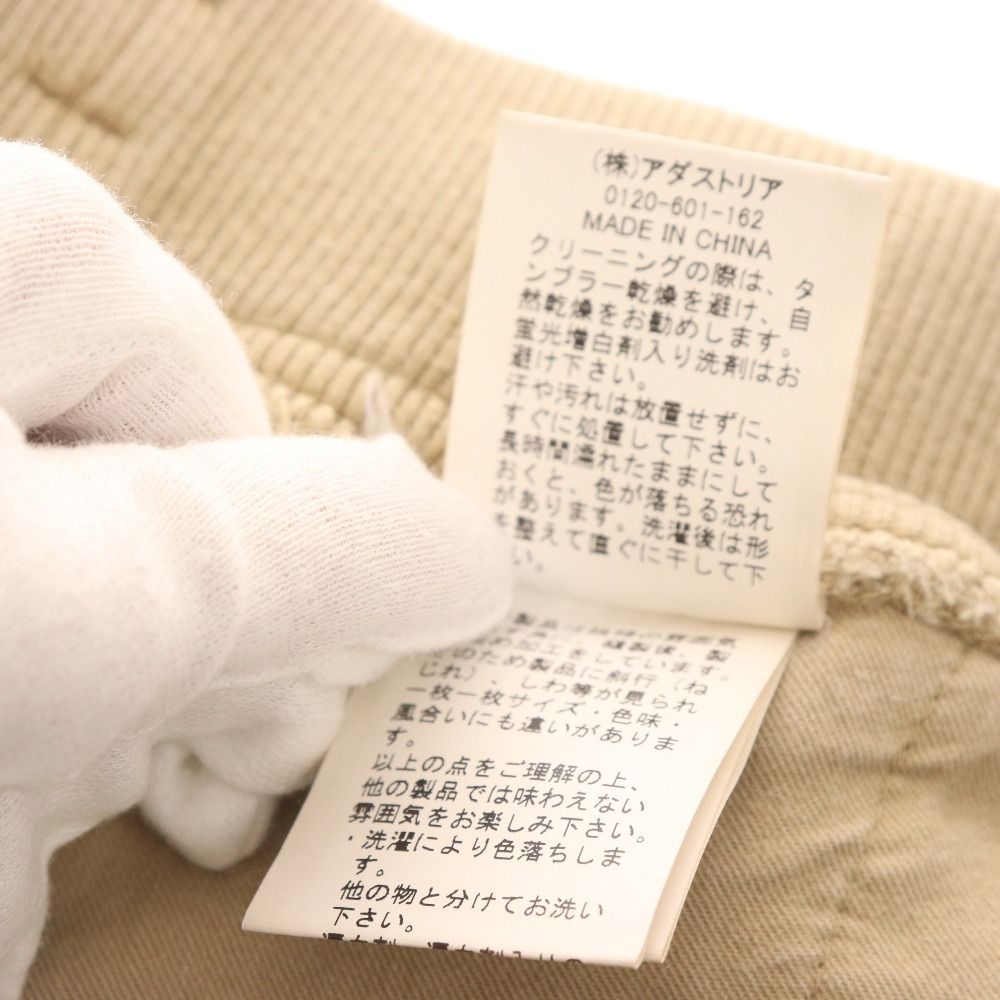 (株)アダストリア
0120-601-162
MADE IN CHINA
クリーニングの際は、タ
ンブラー乾燥を避け、自
然乾燥をお勧めします。
蛍光増白剤入り洗剤はお
避け下さい。
汗や汚れは放置せずに、
すぐに処置して下さい。
長時間濡れたままにして
おくと、色が落ちる恐れ
があります。洗濯後は形
を整えて直ぐに干して下
い。
製品は
縫製後、製
加工をしています。
のため製品に斜行（ね
じれ）、しわ等が見られ
一枚一枚サイズ・色味・
風合いにも違いがありま
す。
以上の点をご理解の上、
他の製品では味わえない
雰囲気をお楽しみ下さい。
・洗濯により色落ちしま
す。
他の物と分けてお洗い
下さい。